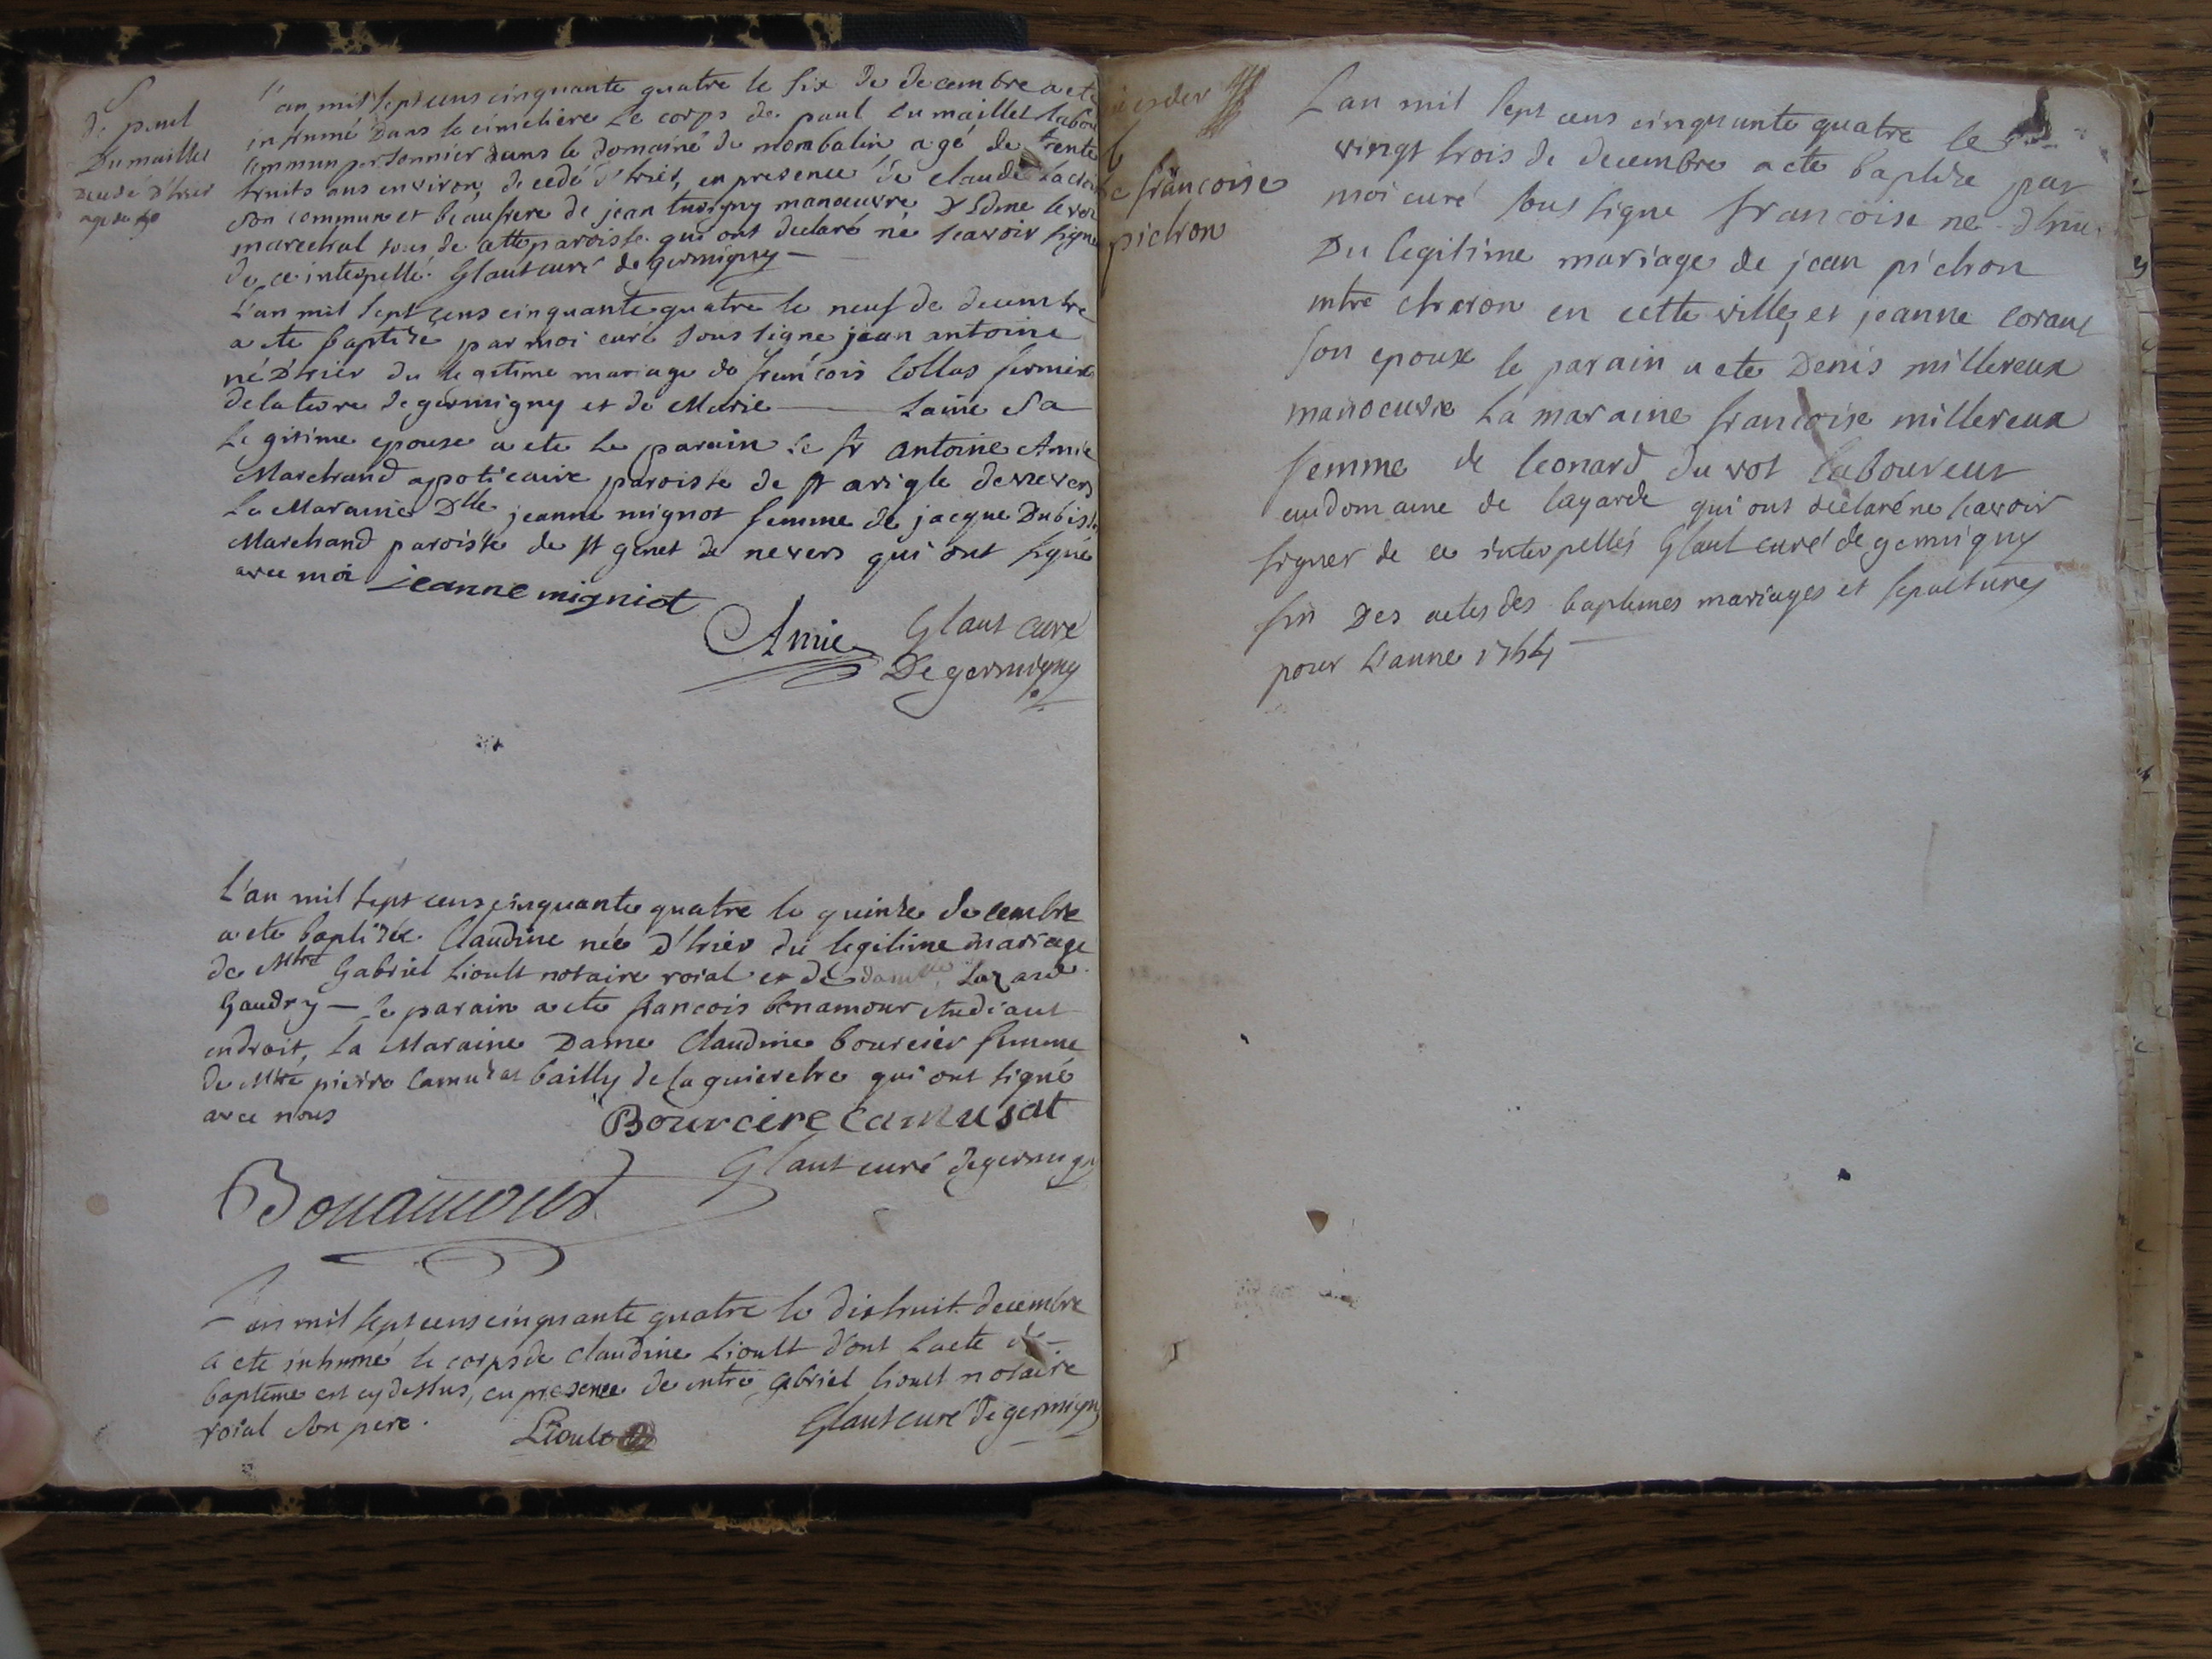 S
de paul
Dumaillet
decedé d'hier
agé de
l'an mil sept cens cinquante quatre le six de decembre a eté
inhumé dans le cimetiere le corps de paul dumaillet labou
commun personnier dans le domaine de mombalin agé de trente
huits ans environ, decedé d'hier, en presence de claude Lacroi
son commun et beaufrere de jean tuvigny manoeuvre d'Edme
marechal tous de cette paroisse qui ont declaré ne scavoir signe
de ce interpellé. Glaut curé de germigny —
L'an mil sept cens cinquante quatre le neuf de decembre
a ete baptisé par moi curé sous signe jean antoine
né d'hier du legitime mariage de francois Collas fermier
de la terre de germigny et de Marie — Laine sa
legitime epouse a ete le parain le sr antoine Amie
Marchand apoticaire paroisse de st arigle de nevers
la Maraine Dlle jeanne mignot femme de jacque Dubis
Marchand paroisse de st genet de nevers qui ont signé
avec moi jeanne migniot
Amie Glaut curé
De germigny
L'an mil sept cens cinquante quatre le quinze decembre
a ete baptisée Claudine née d'hier du legitime mariage
de Mtre Gabriel Lioult notaire roial et de Lazare
Gaudry — le parain a ete francois bonamour etudiant
en droit, la Maraine Dame Claudine bourcier femme
de Mtre pierre Camusat bailly de la guierche qui ont signé
avec nous
Bourcire Camusat
Glaut curé de germigny
Bonamour
L'an mil sept cens cinquante quatre le dixhuit decembre
a ete inhumé le corps de Claudine Lioult dont lacte de
bapteme est cy dessus, en presence de mtre gabriel lioult notaire
roial son pere.
Lioult Glaut curé de germigny
b
de francoise
pichon
L'an mil sept cens cinquante quatre le
vingt trois de decembre a ete baptisé par
moi curé sous signe francoise né d'hie
Du legitime mariage de jean pichon
mtre charon en cette ville, et jeanne coraul
son epouse le parain a ete Denis millereux
manoeuvre La maraine francoise millereux
femme de leonard du vot laboureur
au domaine de lagarde qui ont declaré ne scavoir
signer de ce interpellés Glaut curé de germigny
fin des actes des baptemes mariages et sepultures
pour L'anne 1754